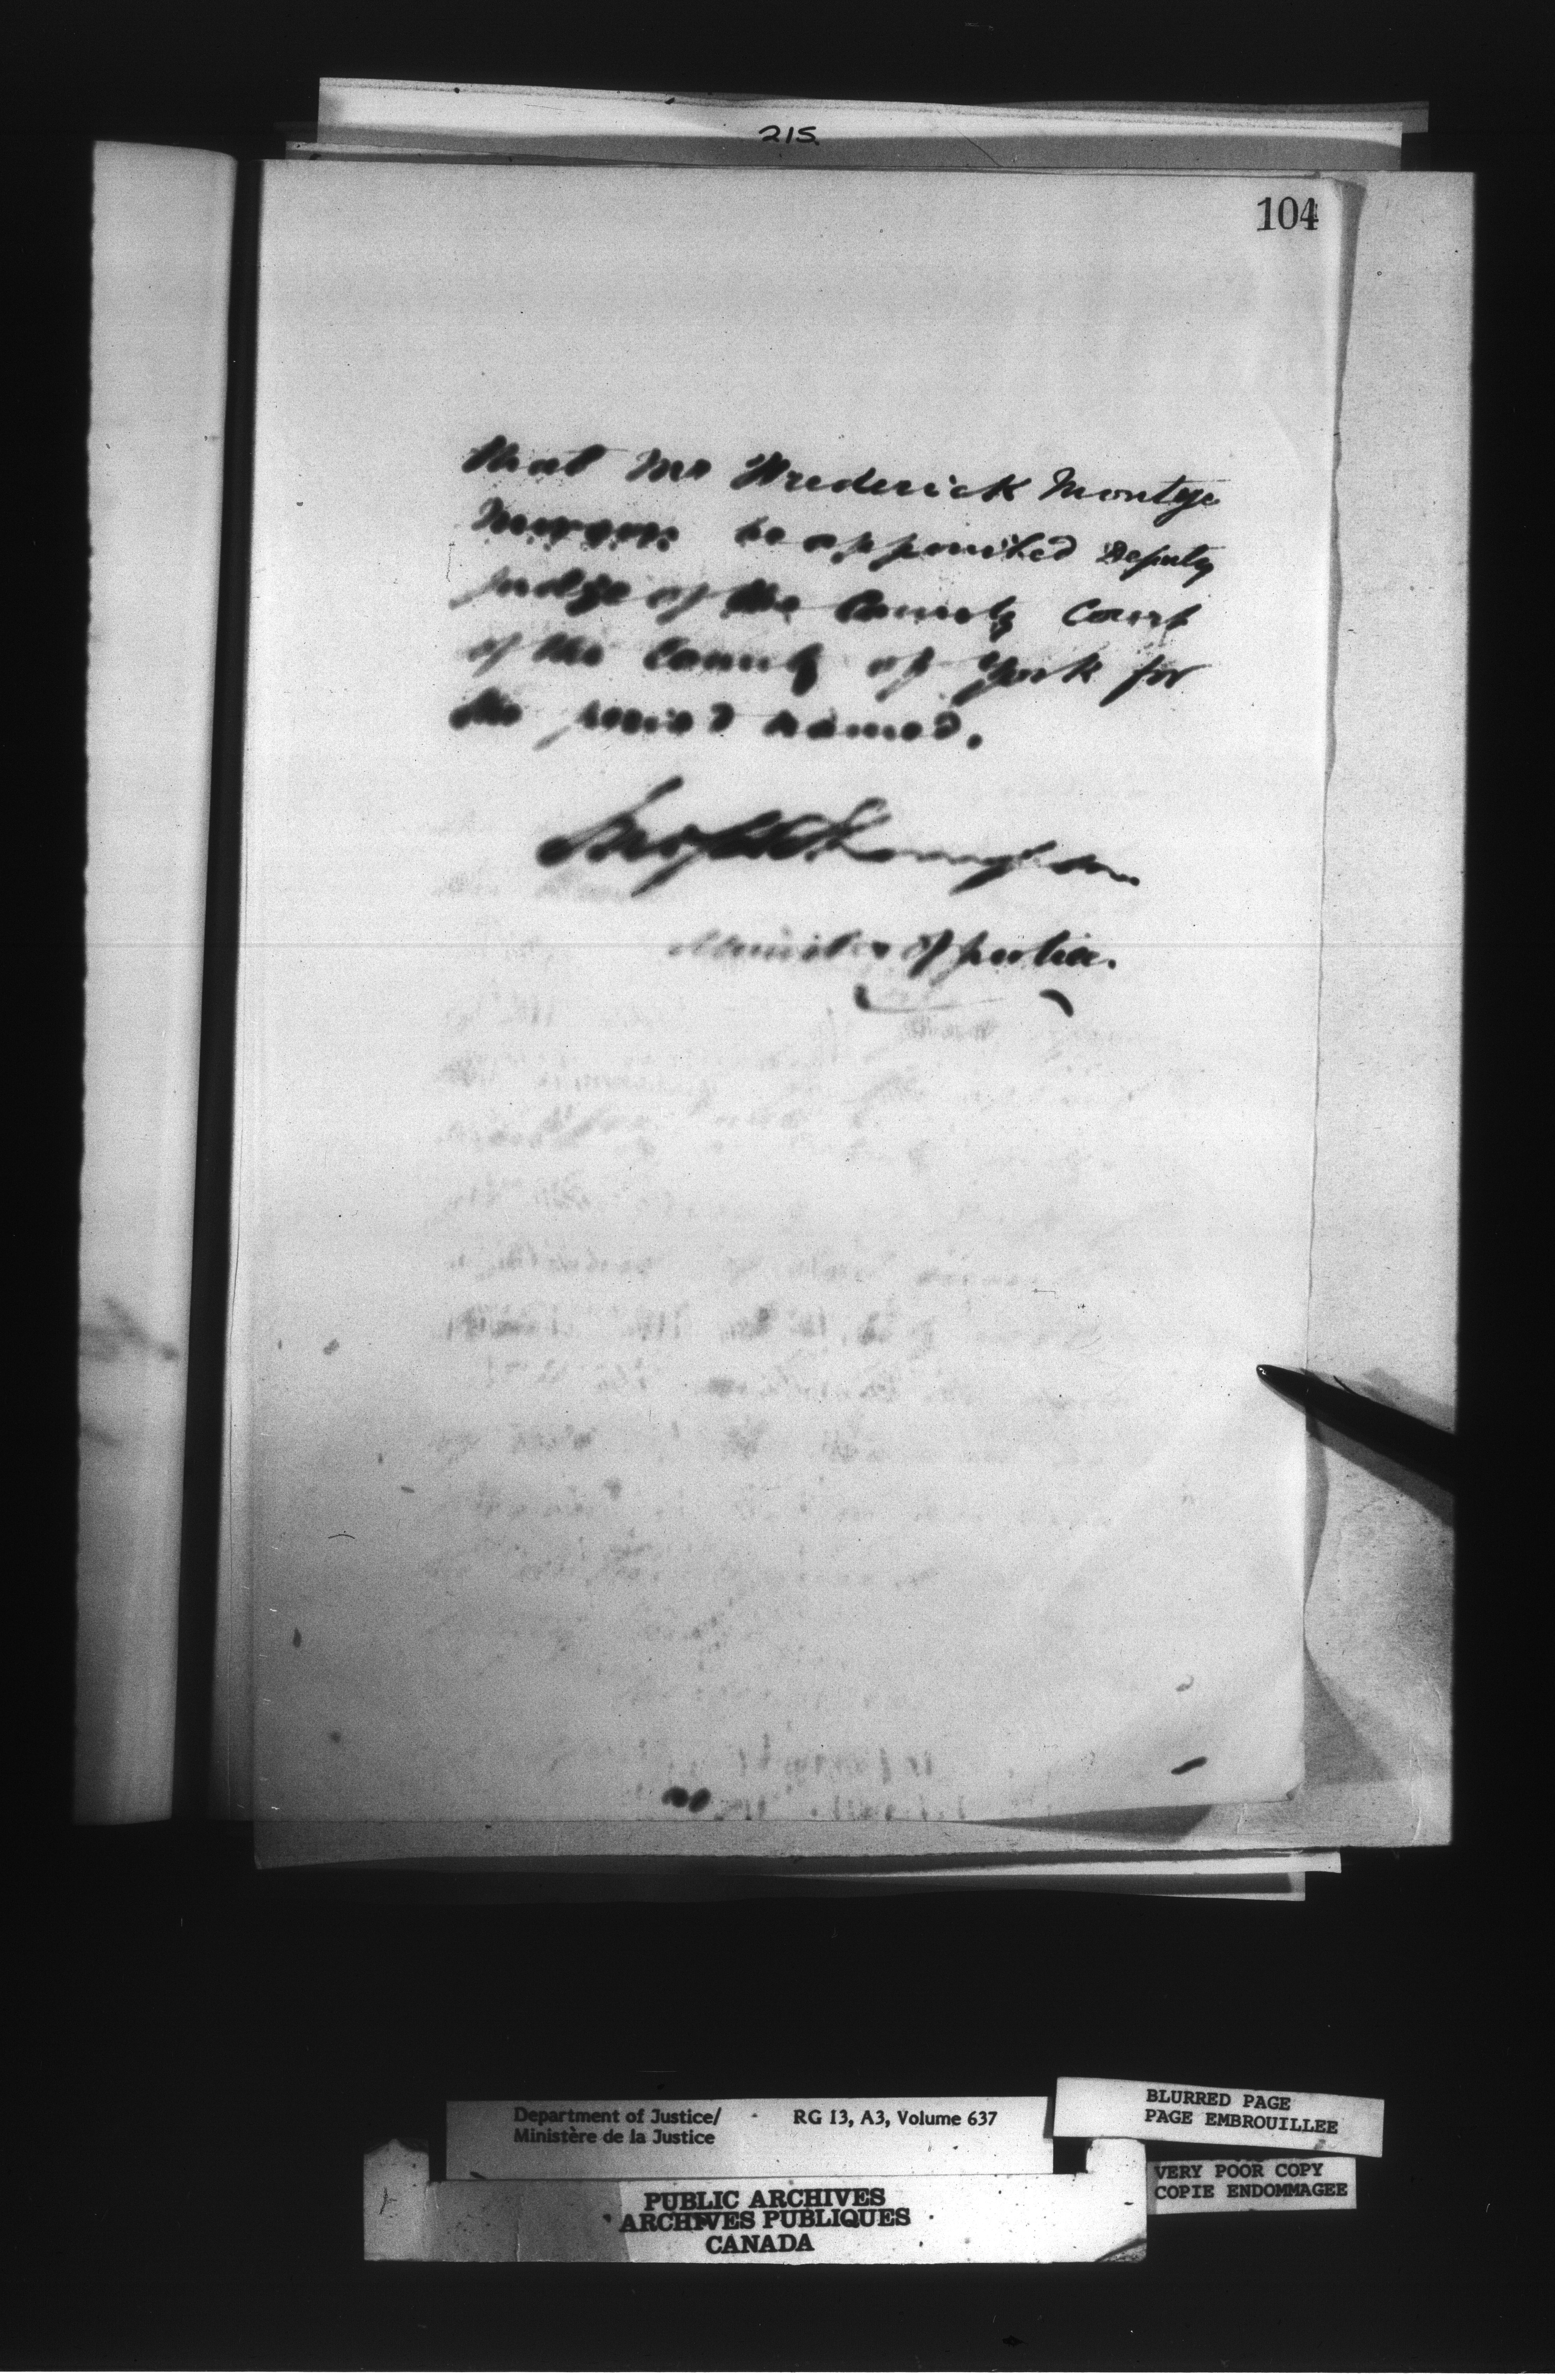 215.
104
that Mr Frederick Montye
Morgan be appointed Deputy
judge of the County Court
of the County of York for
the period named.
Jno S D Thompson
Minister of Justice.
Department of Justice/
Ministère de la Justice
RG 13, A3, Volume 637
BLURRED PAGE
PAGE EMBROUILLEE
VERY POOR COPY
COPIE ENDOMMAGEE
PUBLIC ARCHIVES
ARCHIVES PUBLIQUES
CANADA